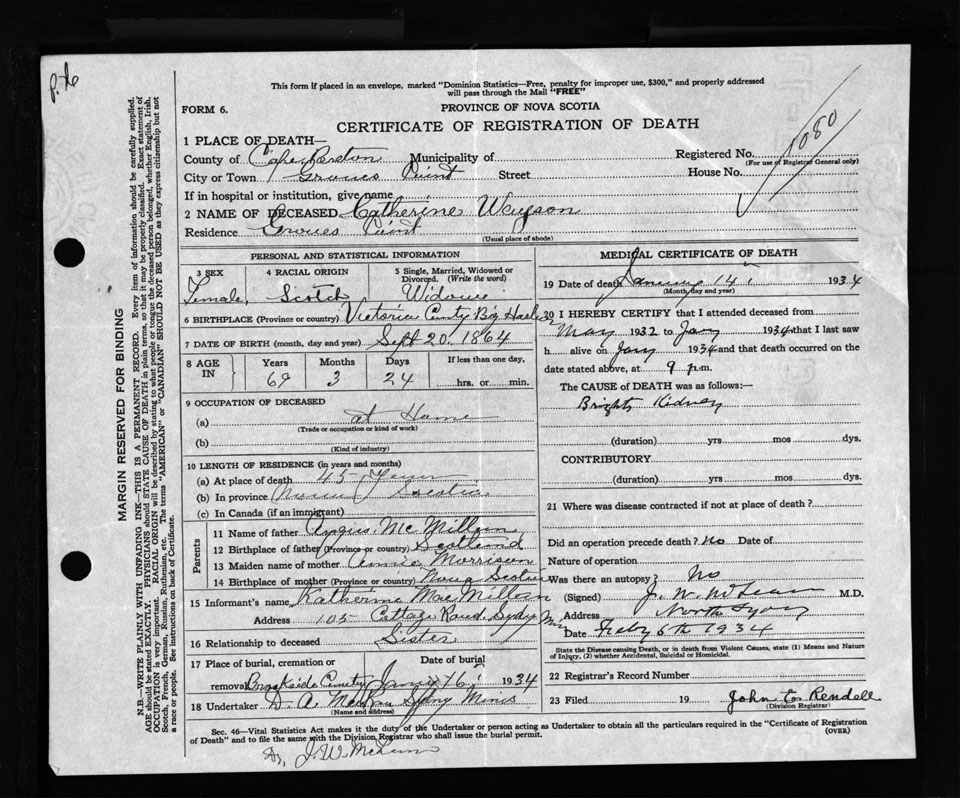 P.26
This form if placed in an envelope, marked "Dominion Statistics—Free, penalty for improper use, $300," and properly addressed
will pass through the Mail "FREE"
FORM 6.
PROVINCE OF NOVA SCOTIA
CERTIFICATE OF REGISTRATION OF DEATH
1080
1 PLACE OF DEATH—
County of Cape Breton Municipality of
Registered No.
(For use of Registrar General only)
City or Town Groves Point Street House No.
If in hospital or institution, give name
2 NAME OF DECEASED Katherine
Residence Groves Point
(Usual place of abode)
PERSONAL AND STATISTICAL INFORMATION
3 SEX 4 RACIAL ORIGIN 5 Single, Married, Widowed or Divorced. (Write the word)
Female Scotch Widow
6 BIRTHPLACE (Province or country) Victoria County Big
7 DATE OF BIRTH (month, day and year) Sept 20. 1864
8 AGE IN Years Months Days If less than one day,
69 3 24 hrs. or min.
9 OCCUPATION OF DECEASED
(a) at Home
(Trade or occupation or kind of work)
(b)
(Kind of industry)
10 LENGTH OF RESIDENCE (in years and months)
(a) At place of death 45 Years
(b) In province Nova Scotia
(c) In Canada (if an immigrant)
Parents
11 Name of father Angus McMillan
12 Birthplace of father (Province or country) Scotland
13 Maiden name of mother Annie Morrison
14 Birthplace of mother (Province or country) Nova Scotia
15 Informant's name Katherine MacMillan
Address 105 Cottage Road, Sydney
16 Relationship to deceased Sister
17 Place of burial, cremation or Date of burial
removal Brookside Cemetery January 16 1934
18 Undertaker D. A. Sydney Mines
(Name and address)
MEDICAL CERTIFICATE OF DEATH
19 Date of death January 14 1934
(Month, day and year)
20 I HEREBY CERTIFY that I attended deceased from
May 1932 to Jany 1934 that I last saw
h alive on Jany 1934 and that death occurred on the
date stated above, at 9 p.m.
The CAUSE OF DEATH was as follows:—
Brights Kidney
(duration) yrs mos dys.
CONTRIBUTORY
(duration) yrs mos dys.
21 Where was disease contracted if not at place of death?
Did an operation precede death? No Date of
Nature of operation
Was there an autopsy? No
(Signed) J. W. McLean M.D.
Address North Sydney
Date Feby 5th 1934
State the Disease causing Death, or in death from Violent Causes, state (1) Means and Nature
of Injury, (2) whether Accidental, Suicidal or Homicidal.
22 Registrar's Record Number
23 Filed 19 John E. Rendall
(Division Registrar)
Sec. 46—Vital Statistics Act makes it the duty of the Undertaker or person acting as Undertaker to obtain all the particulars required in the "Certificate of Registration
of Death" and to file the same with the Division Registrar who shall issue the burial permit.
(OVER)
Dr. J. W. McLean
MARGIN RESERVED FOR BINDING
N.B.—WRITE PLAINLY WITH UNFADING INK—THIS IS A PERMANENT RECORD. Every item of information should be carefully supplied.
AGE should be stated EXACTLY. PHYSICIANS should STATE CAUSE OF DEATH in plain terms, so that it may be properly classified. Exact statement of
OCCUPATION is very important. RACIAL ORIGIN will be described by stating to what people or tongue the deceased person belonged, whether English, Irish,
Scotch, French, German, Russian, Ruthenian, etc. The terms "AMERICAN" or "CANADIAN" SHOULD NOT BE USED as they express citizenship but not
a race or people. See instructions on back of Certificate.